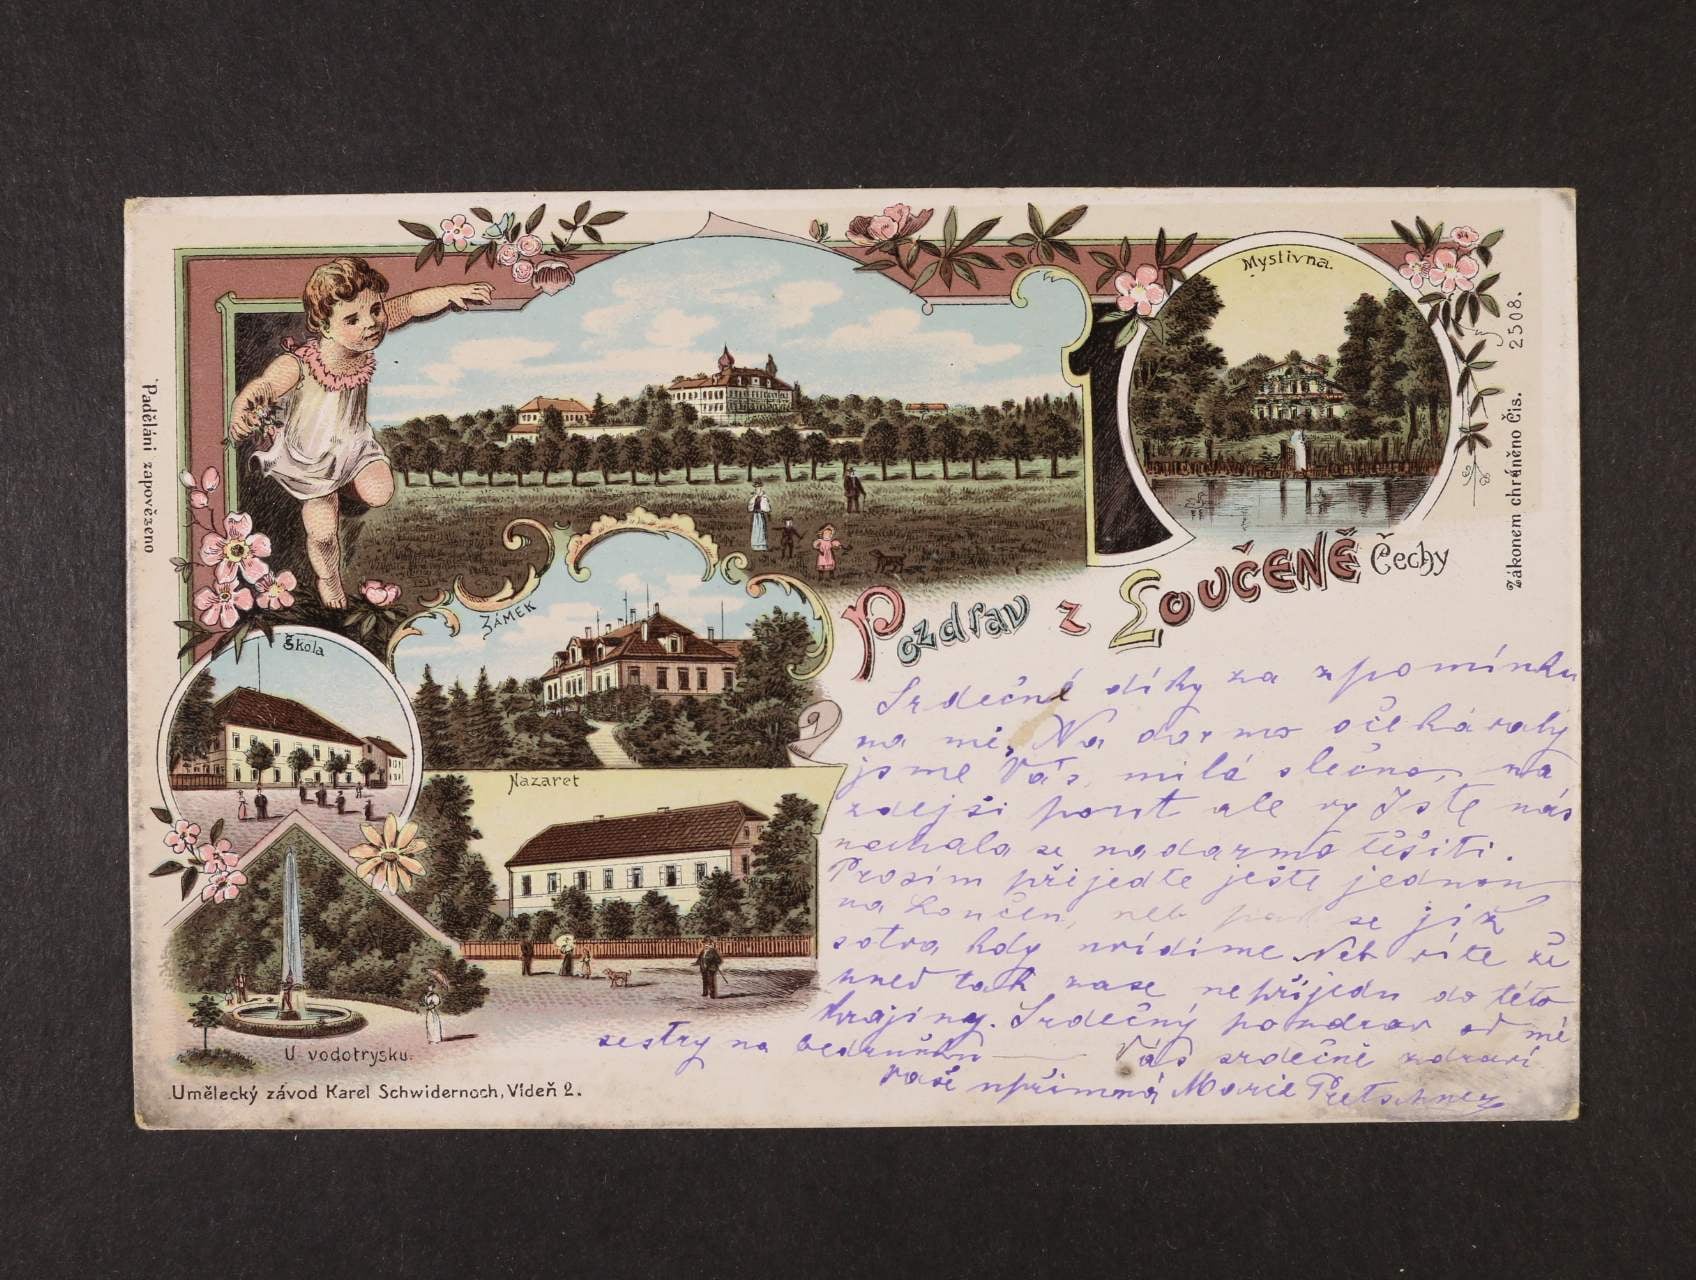 Padělání zapovězeno
Mystivna.
Zákonem chráněno Čis. 2508.
Pozdrav z Loučeně Čechy
Zámek
Škola
Nazaret
U vodotrysku.
Umělecký závod Karel Schwidernoch, Vídeň 2.
Srdečné díky za zpomínku
na mě. Na darmo očekávaly
jsme Vás, milá slečno, na
zdejší pouť ale vy Jste nás
nechala se nadarmo těšiti.
Prosím přijedte ješte jednou
na Loučen, neb se již
sotva kdy uvídíme Neb víte že
hned tak zase nepřijedu do této
krajiny. Srdečný pozdrav od mé
sestry na Vás srdečně zdraví
vaše upřímná Marie Pretschner